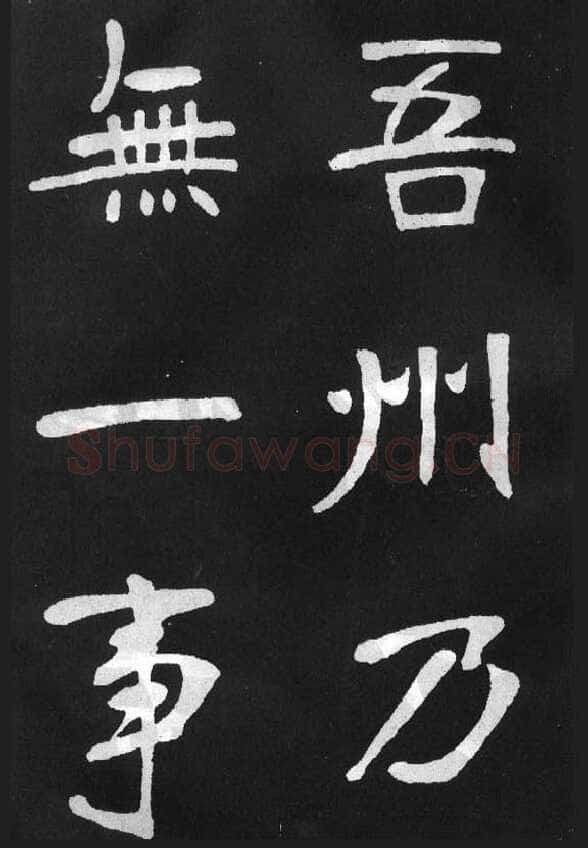 吾州乃
無一事
Shufawang.CN